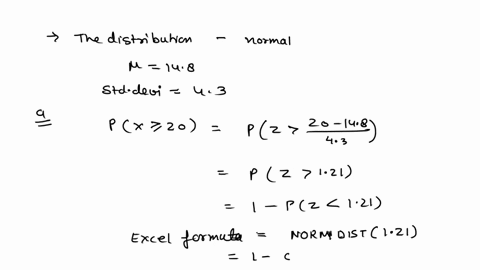 → The distribution - normal
μ = 14.8
Std.devi = 4.3
a P(x ≥ 20) = P(z > 20-14.8/4.3)
= P(z > 1.21)
= 1 - P(z < 1.21)
Excel formula = NORMDIST(1.21)
= 1 - 0